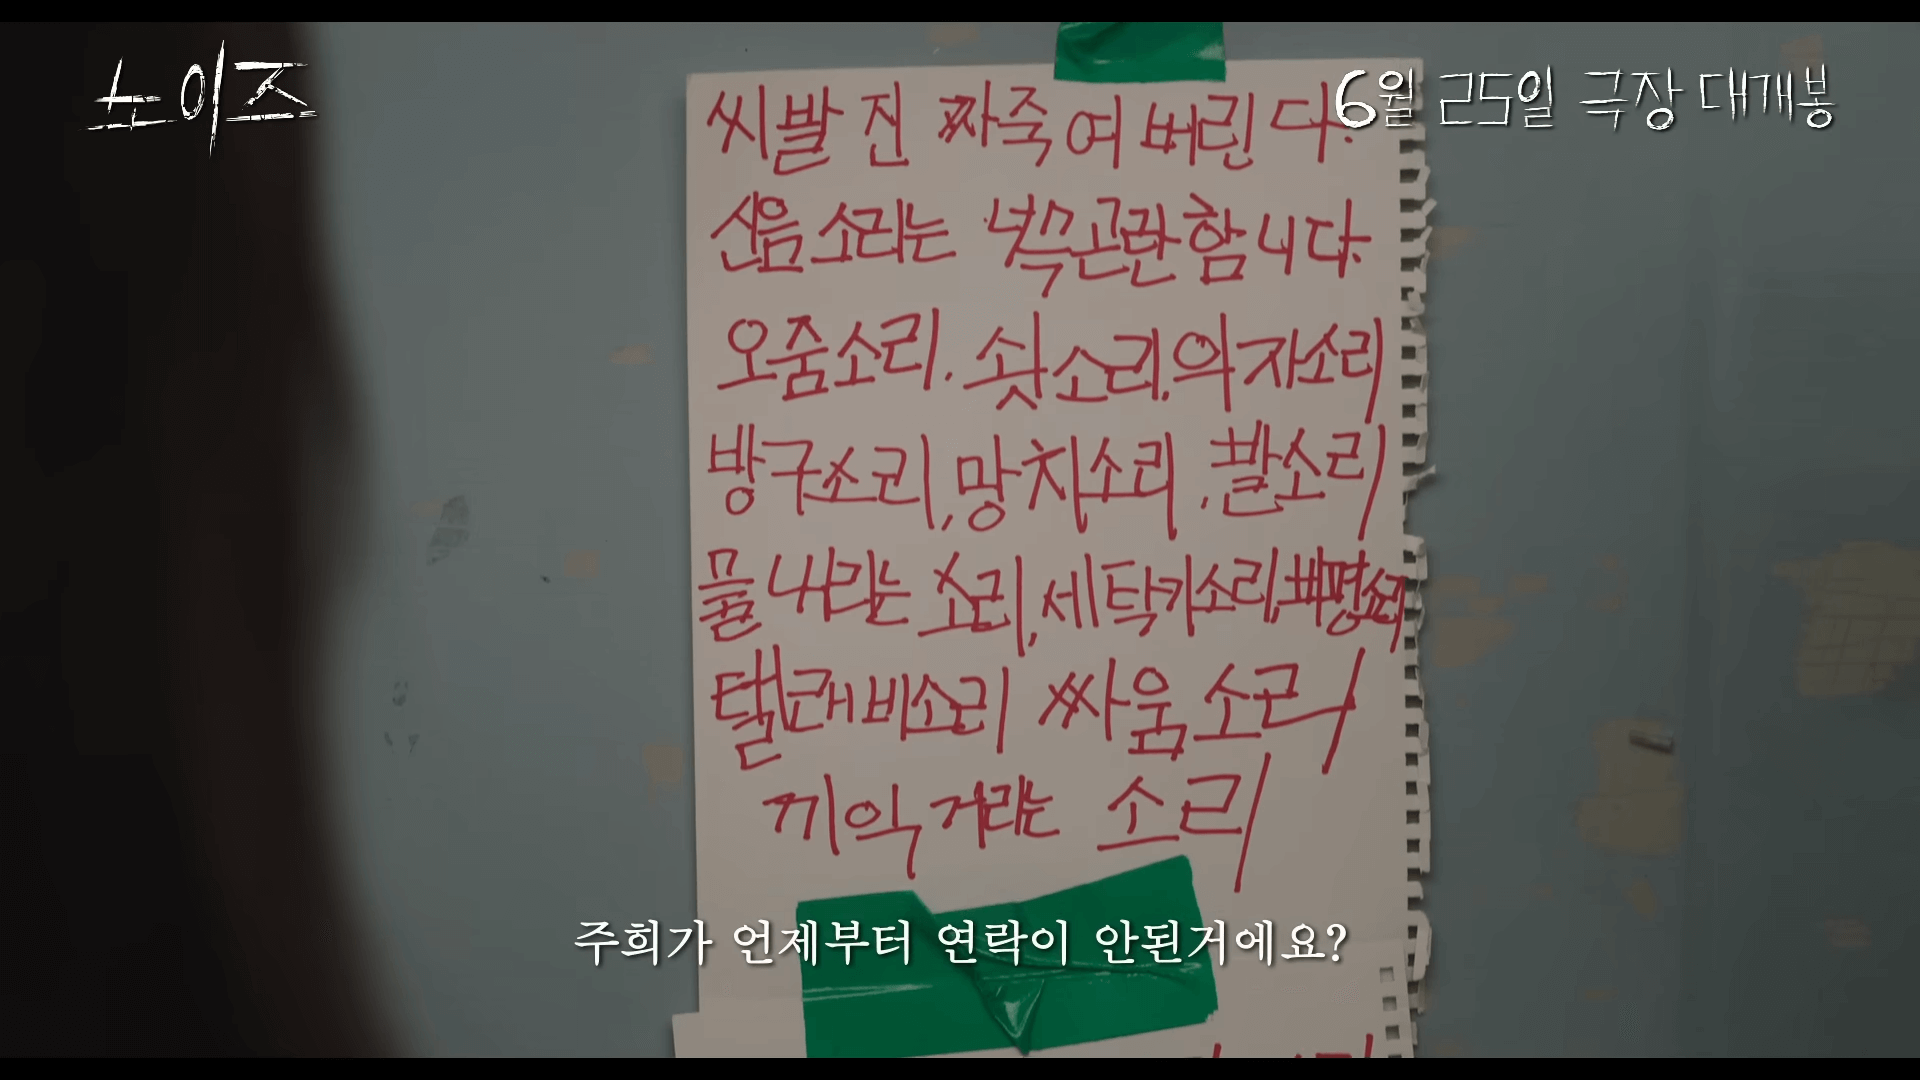 노이즈
6월 25일 극장 대개봉
씨발 진짜죽여버린다.
신음소리는 넉윽곤란함니다.
오줌소리. 쇳소리, 의자소리
방구소리, 망치소리, 발소리
물 내리는 소리, 세탁기소리, 빠평소리
텔레비소리 싸움소리
끼익거리는 소리
주희가 언제부터 연락이 안된거에요?